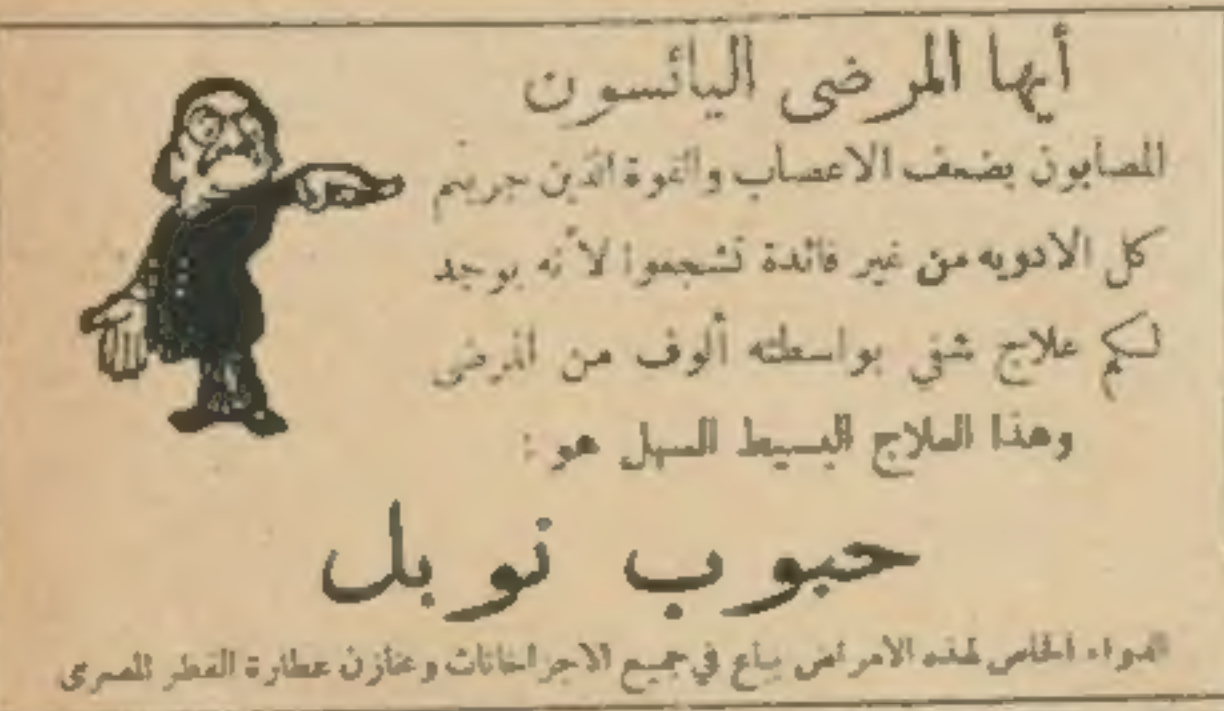 أيها المرضى اليائسون
المصابون بضعف الاعصاب والقوة الذين جربتم
كل الادويه من غير فائدة تشجعوا لأنه يوجد
لكم علاج شفي بواسطته ألوف من المرضى
وهذا العلاج البسيط السهل هو :
حبوب نوبل
الدواء الخاص لهذه الامراض يباع في جميع الاجزاخانات ومخازن عطارة القطر المصرى